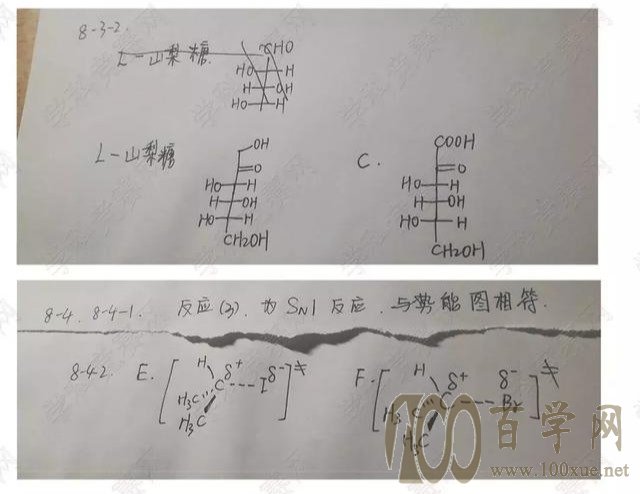 8-3-2.
L-山梨糖 CHO
HO H
H OH
HO H
L-山梨糖
OH
O
HO H
H OH
HO H
CH2OH
C.
COOH
O
HO H
H OH
HO H
CH2OH
8-4. 8-4-1. 反应(3). 为 SN1 反应, 与势能图相符.
8-4-2. E. [H H3C H3C C δ+ --- I δ-]≠
F. [H H3C H3C C δ+ --- Br δ-]≠
100百学网
www.100xue.net